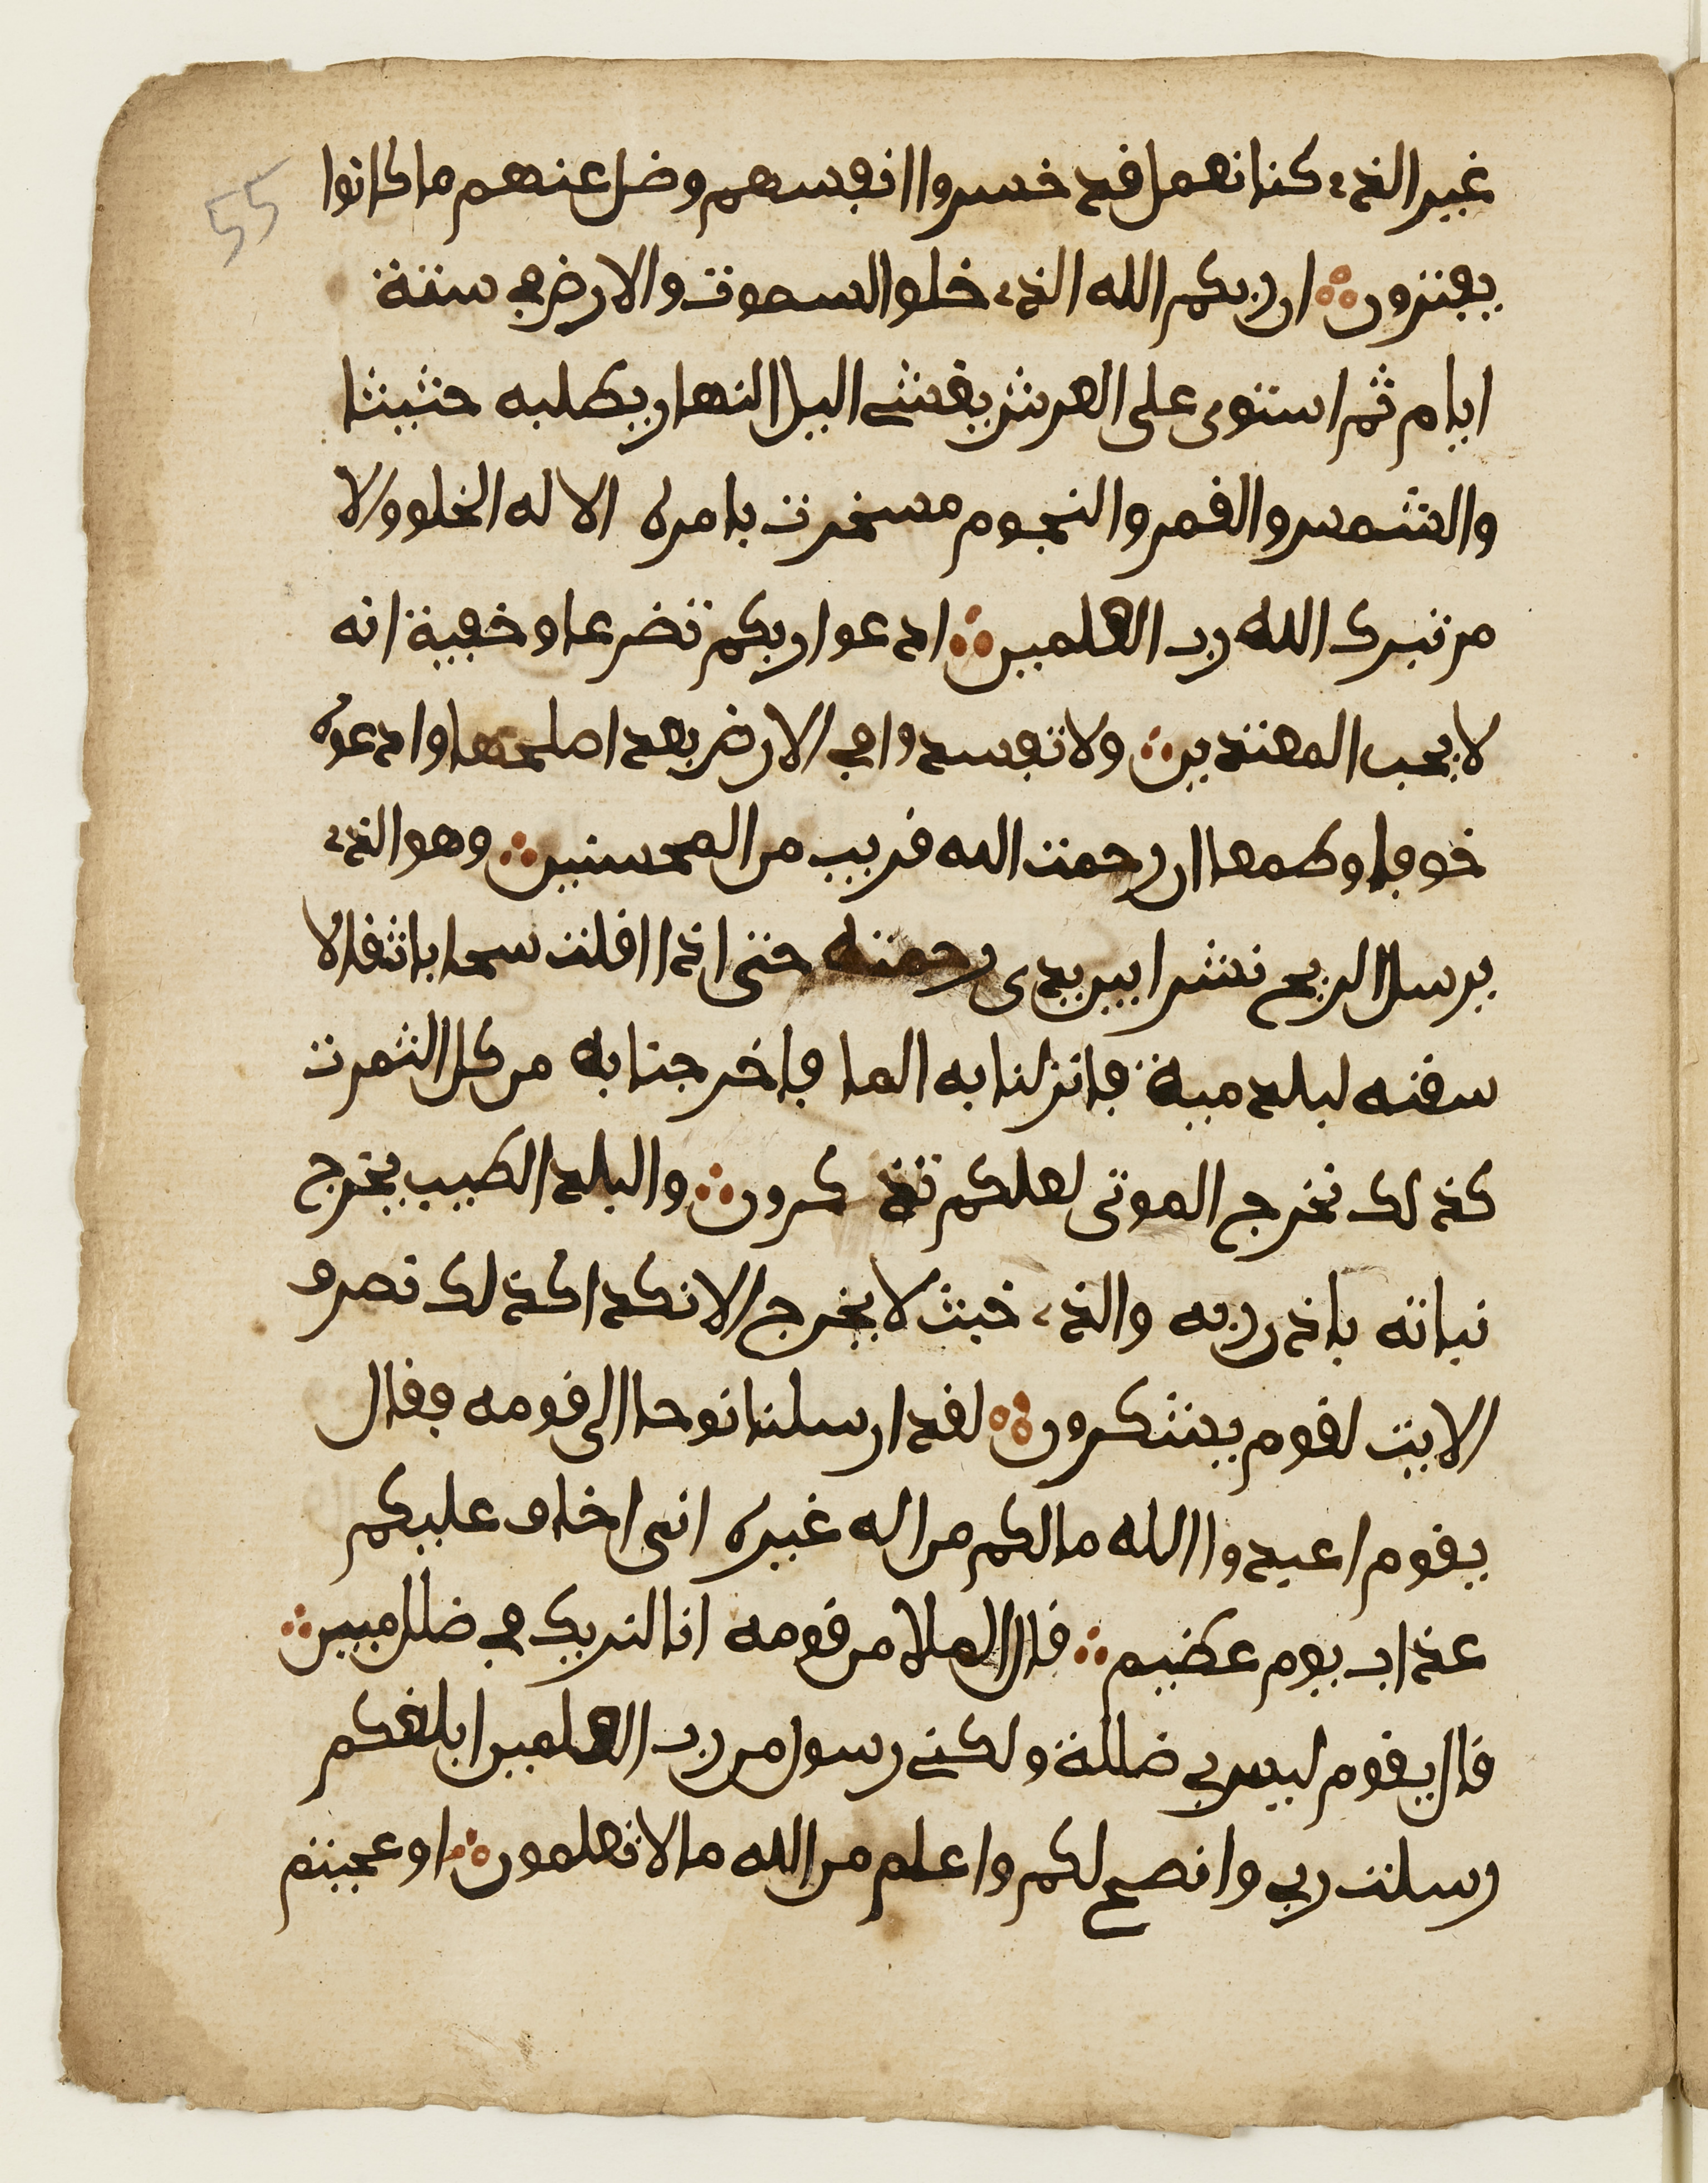 55
غير الذي كنا نعمل قد خسروا انفسهم وضل عنهم ما كانوا
يفترون ان ربكم الله الذي خلق السموت والارض في ستة
ايام ثم استوى على العرش يغشي اليل النهار يطلبه حثيثا
والشمس والقمر والنجوم مسخرت بامره الا له الخلق والا
مر تبرك الله رب العلمين ادعوا ربكم تضرعا وخفية انه
لا يحب المعتدين ولا تفسدوا في الارض بعد اصلحها وادعوه
خوفا وطمعا ان رحمت الله قريب من المحسنين وهو الذي
يرسل الريح نشرا بين يدى رحمته حتى اذا اقلت سحابا ثقالا
سقنه لبلد ميت فانزلنا به الما فاخرجنا به من كل الثمرت
كذلك نخرج الموتى لعلكم تذكرون والبلد الطيب يخرج
نباته باذن ربه والذي خبث لا يخرج الا نكدا كذلك نصرف
الايت لقوم يشكرون لقد ارسلنا نوحا الى قومه فقال
يقوم اعبدوا الله ما لكم من اله غيره انى اخاف عليكم
عذاب يوم عظيم قال الملا من قومه انا لنريك في ضلل مبين
قال يقوم ليس بي ضللة ولكني رسول من رب العلمين ابلغكم
رسلت ربي وانصح لكم واعلم من الله ما لا تعلمون اوعجبتم